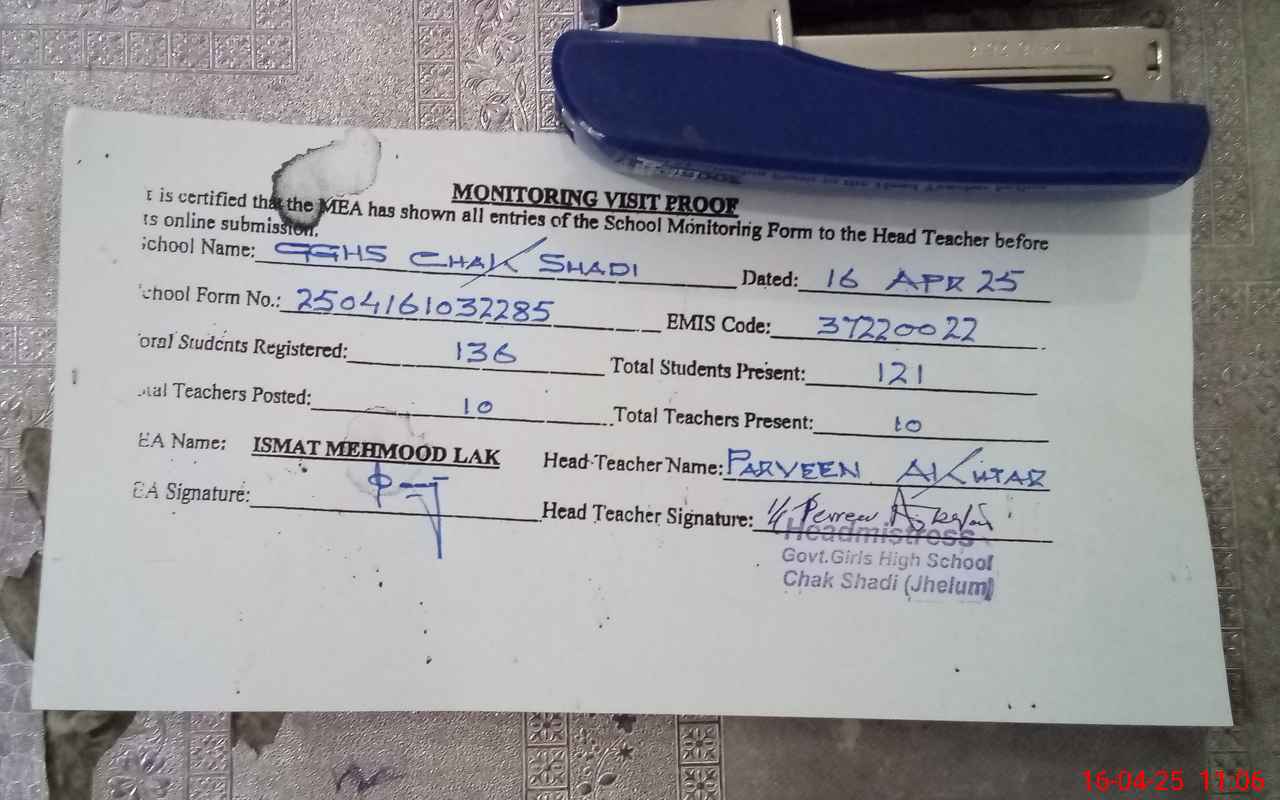 MONITORING VISIT PROOF
t is certified that the MEA has shown all entries of the School Monitoring Form to the Head Teacher before
ts online submission.
School Name: GGHS CHAK SHADI Dated: 16 APR 25
chool Form No.: 2504161032285 EMIS Code: 37220022
otal Students Registered: 136 Total Students Present: 121
otal Teachers Posted: 10 Total Teachers Present: 10
EA Name: ISMAT MEHMOOD LAK Head Teacher Name: PARVEEN AKHTAR
EA Signature: Head Teacher Signature:
Headmistress
Govt.Girls High School
Chak Shadi (Jhelum)
16-04-25 11:06